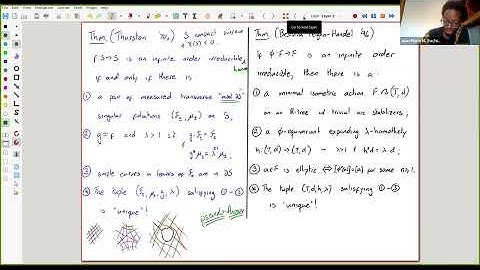 Thm. (Thurston '70s) S compact surface
& χ(S) < 0.
f: S → S is an infinite order irreducible homeo
if and only if there is
① a pair of measured transverse "mod ∂S"
singular foliations (F±, μ±) on S;
② g ≃ f and λ > 1 s.t. g·F± = F±
& g*μ± = λ±¹ μ±;
③ simple curves in leaves of F± are in ∂S
④ The tuple (F±, μ±, g, λ) satisfying ①-③
is "unique"!
pseudo-Anosov
Thm. (Bestvina-Feighn-Handel
if φ: F → F is an infinite order
irreducible, then there is a
① a minimal isometric action F ↷ (T, d)
on an R-tree w/ trivial arc stabilizers;
② a φ-equivariant expanding λ-homothety
h: (T, d) → (T, d) - λ > 1 & h*d = λd;
③ a ∈ F is elliptic ⇔ [φⁿ(a)] = [a] for some n ≥ 1.
④ The tuple (T, d, h, λ) satisfying ①-③
is "unique"!